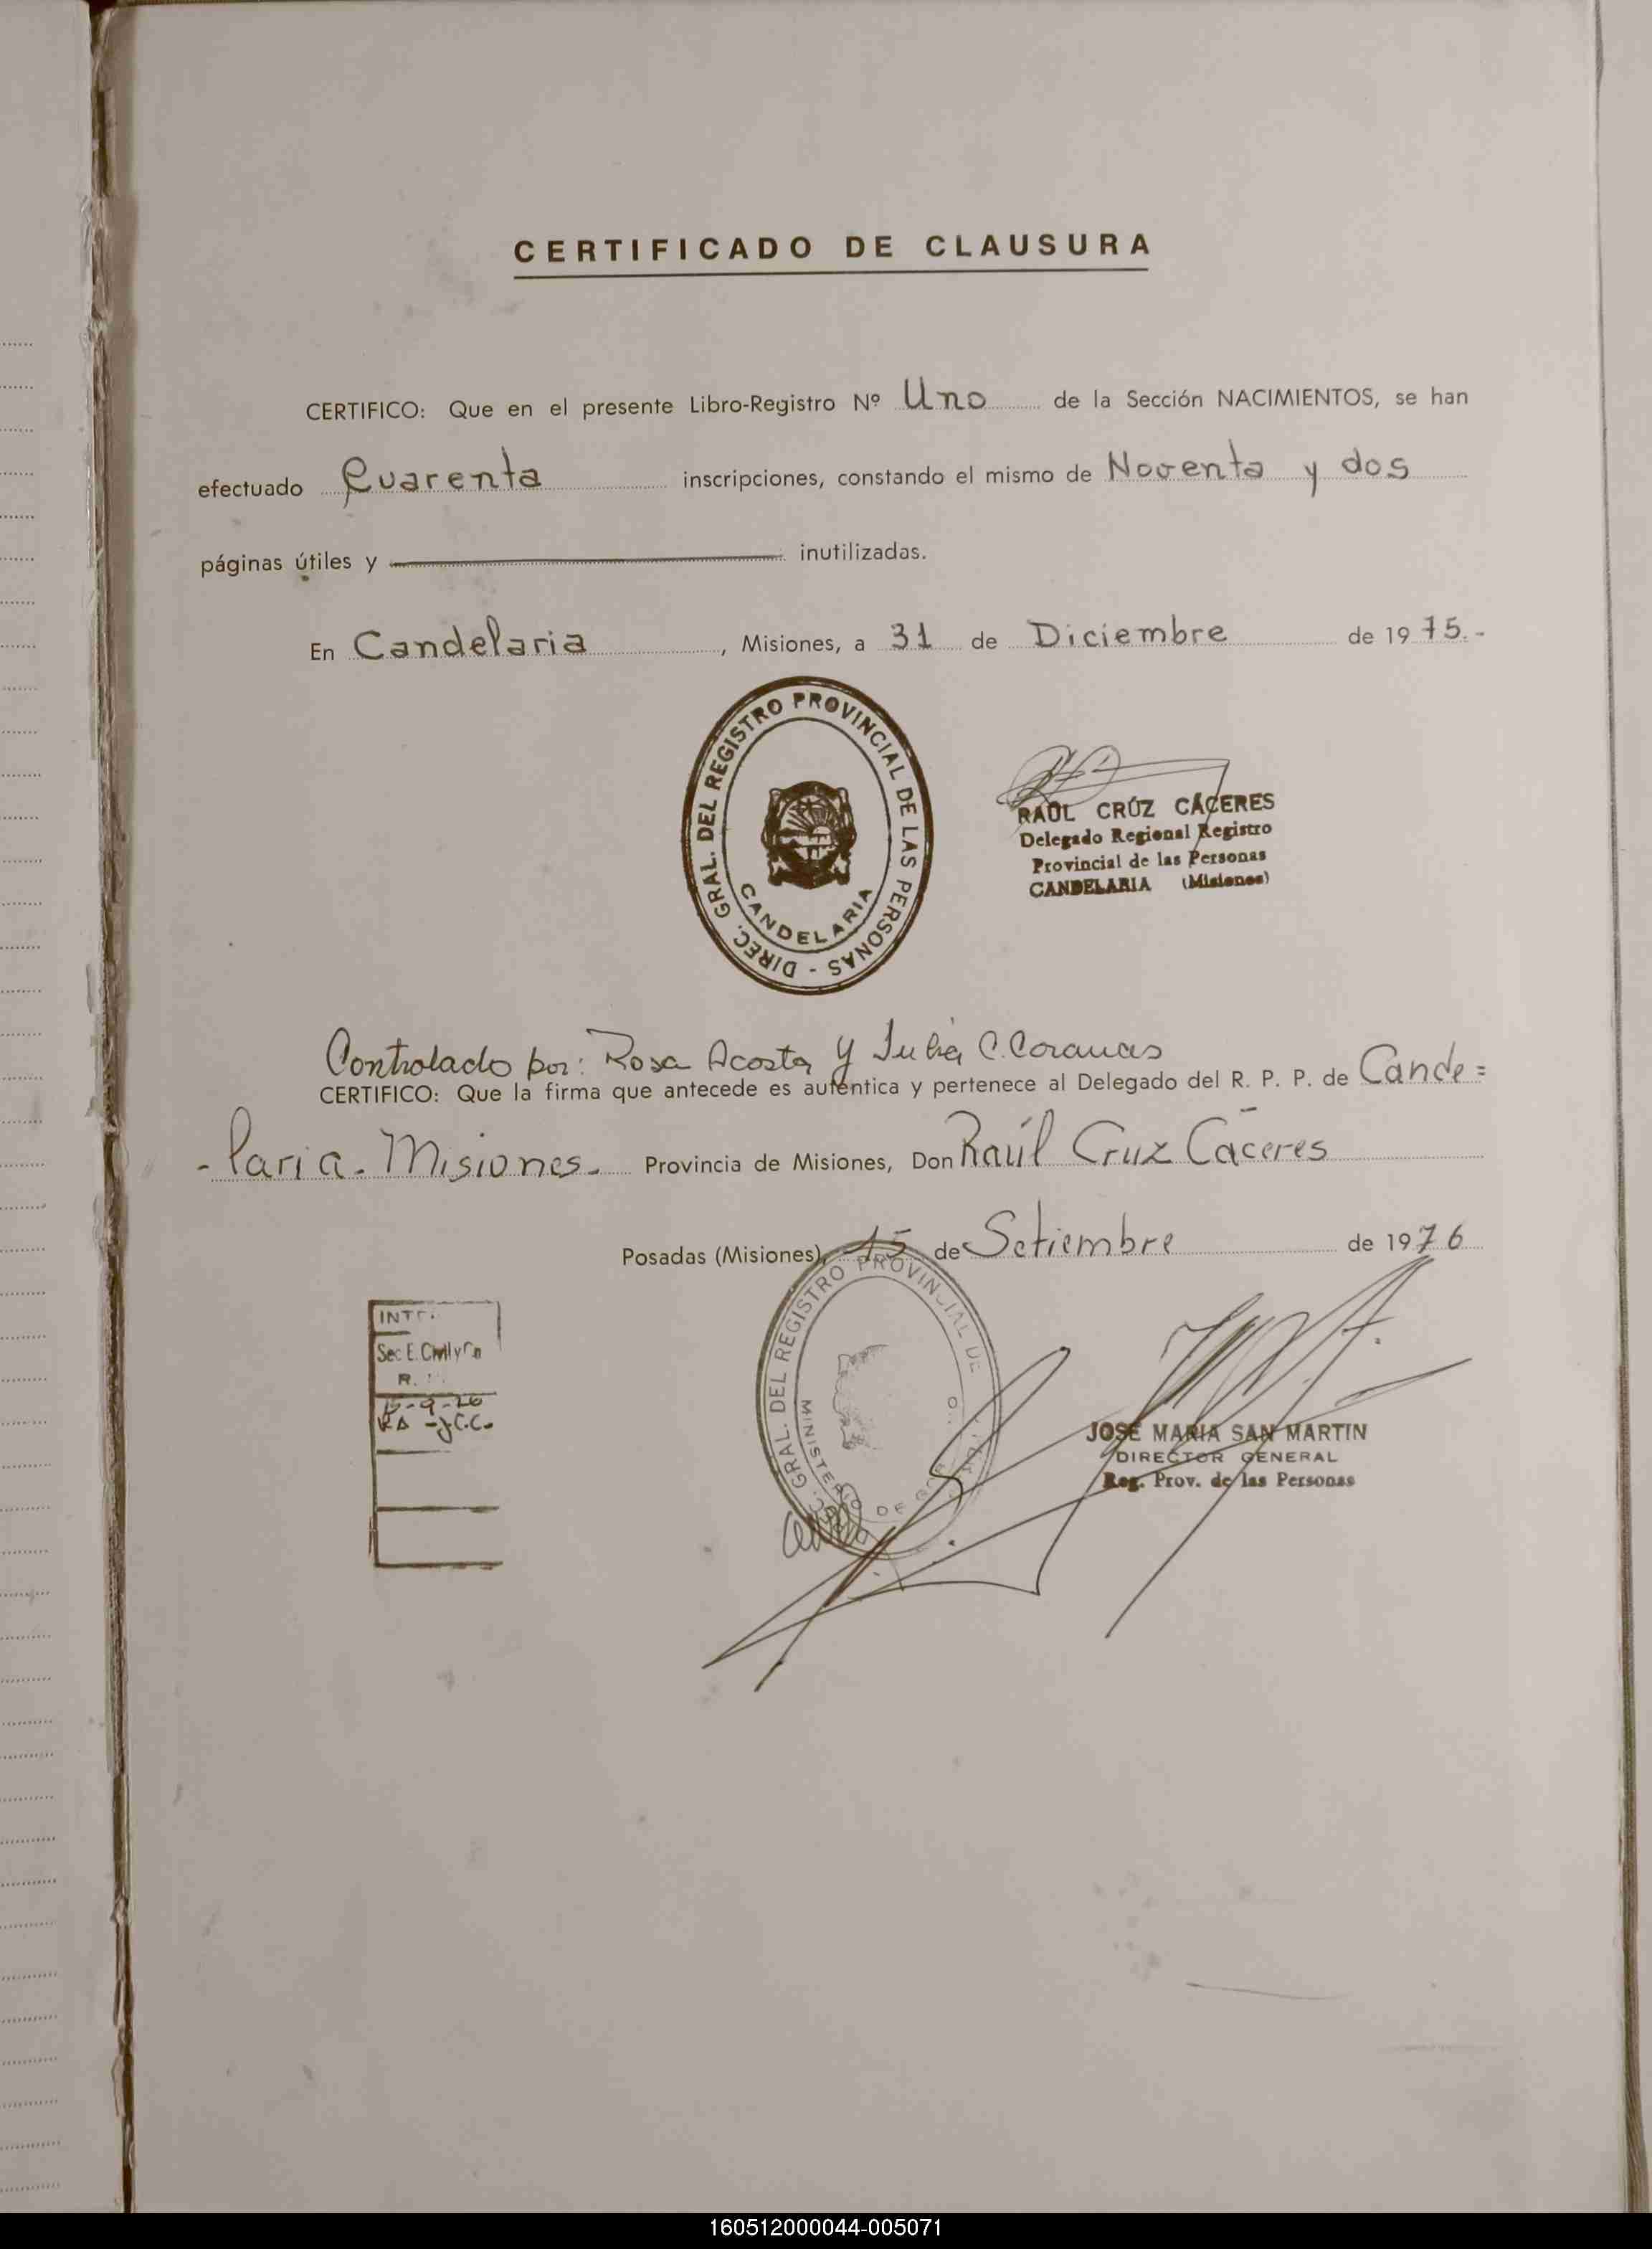 CERTIFICADO DE CLAUSURA
CERTIFICO: Que en el presente Libro-Registro Nº Uno de la Sección NACIMIENTOS, se han
efectuado Cuarenta inscripciones, constando el mismo de Noventa y dos
páginas útiles y inutilizadas.
En Candelaria, Misiones, a 31 de Diciembre de 1975.-
DIREC. GRAL. DEL REGISTRO PROVINCIAL DE LAS PERSONAS -
CANDELARIA
RAÚL CRÚZ CÁCERES
Delegado Regional Registro
Provincial de las Personas
CANDELARIA (Misiones)
Controlado por: Rosa Acosta y Julia C.
CERTIFICO: Que la firma que antecede es auténtica y pertenece al Delegado del R. P. P. de Cande=
-laria. Misiones. Provincia de Misiones, Don Raúl Cruz Cáceres
Posadas (Misiones), 15 de Setiembre de 1976
Sec E. Civil y
R.
15-9-76
RA - J.C.C.
DIREC. GRAL. DEL REGISTRO PROVINCIAL DE
MINISTERIO DE
JOSE MARIA SAN MARTIN
DIRECTOR GENERAL
Reg. Prov. de las Personas
160512000044-005071